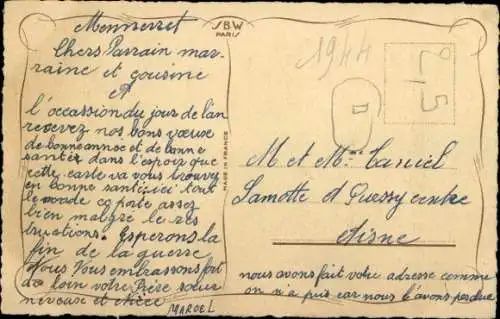 Mennerret
Chers Parrain mar-
raine et cousine
A
l'occassion du jour de l'an
recevez nos bons vœuse
de bonneannee et de bonne
santée dans l'espoir que
cette carte va vous trouvez
en bonne santé ici tout
le monde ce porte assez
bien malgré le res
tructions. Esperons la
fin de la guerre
Nous Vous embrassons fort
de loin votre
neveuse et Nièce
MARCEL
SBW
PARIS
MADE IN FRANCE
1944
D
M et Mme
Lamotte d Quessy centre
Aisne
nous avons fait votre adresse comme
on n'a puis car nous l'avons perdue